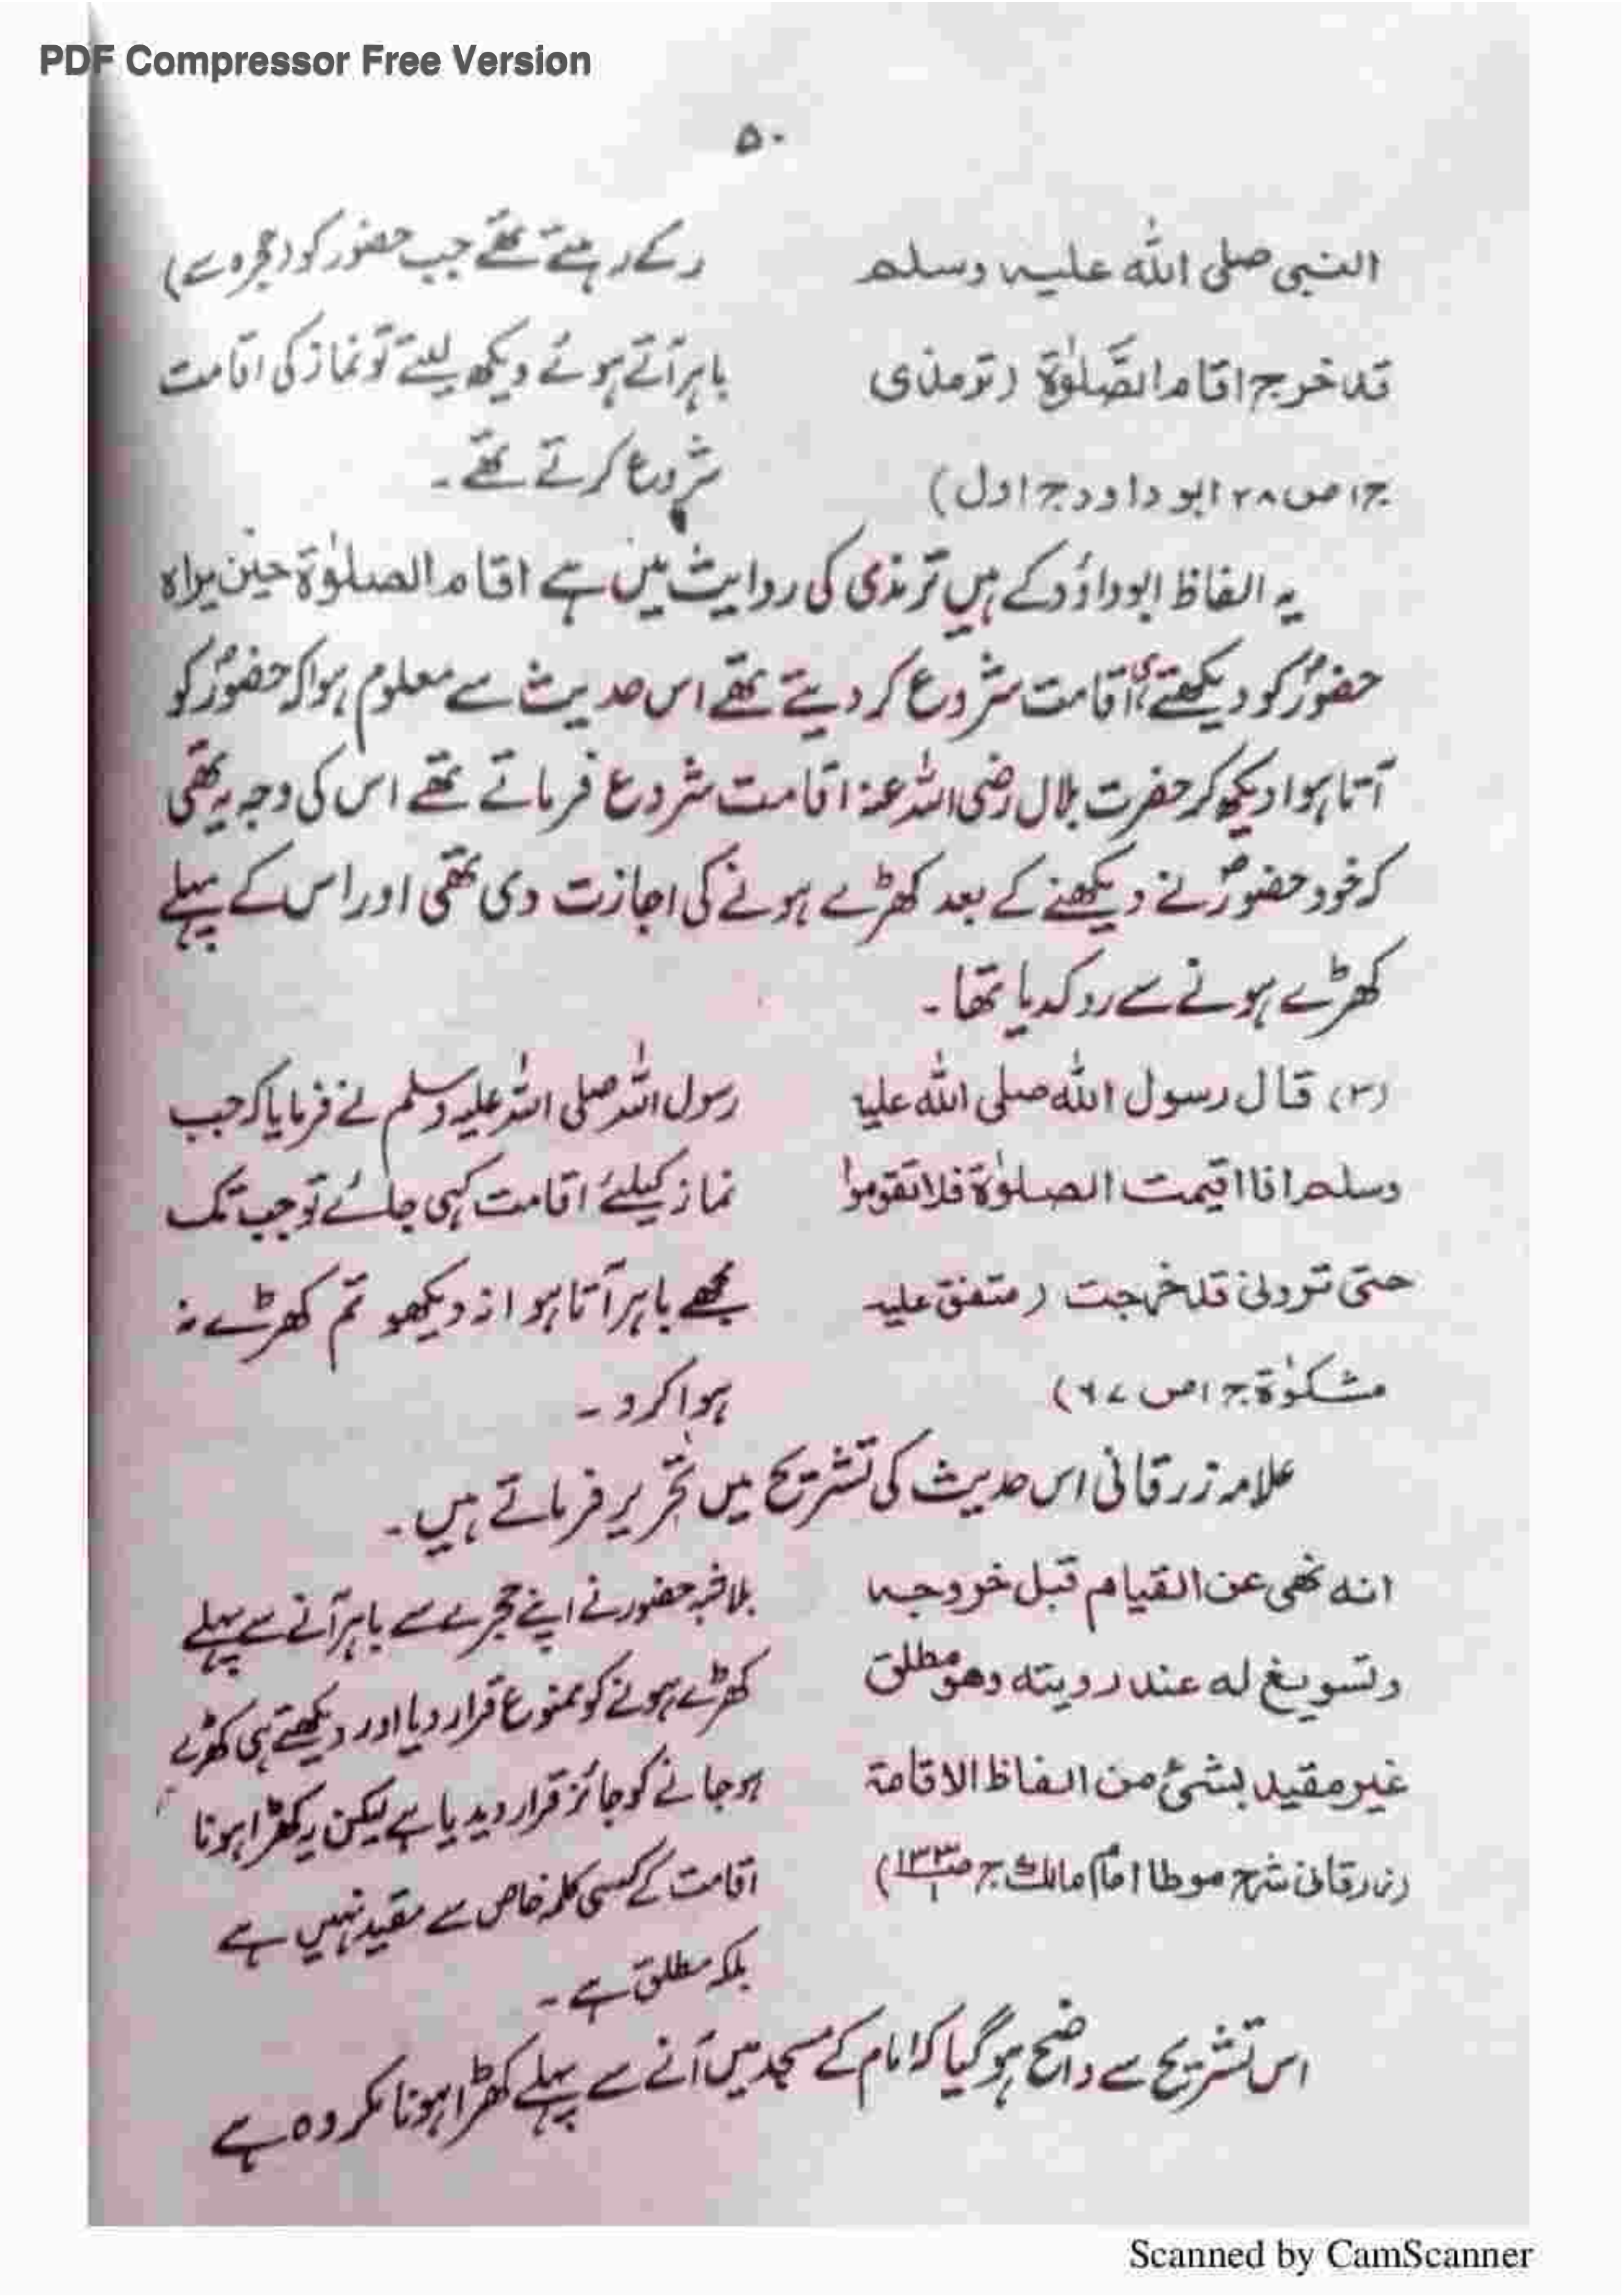 PDF Compressor Free Version
۵۰
النبی صلی اللہ علیہ وسلم
قد خرج اقام الصَّلوٰۃَ (ترمذی
ج۱ ص۲۸ ابو داود ج اول)
رکے رہتے تھے جب حضور کو (حجرہ سے)
باہر آتے ہوئے دیکھ لیتے تو نماز کی اقامت
شروع کرتے تھے۔
یہ الفاظ ابوداؤد کے ہیں ترمذی کی روایت میں ہے اقام الصلوٰۃ حین یراہ
حضورؐ کو دیکھتے ہی اقامت شروع کر دیتے تھے اس حدیث سے معلوم ہوا کہ حضورؐ کو
آتا ہوا دیکھ کر حضرت بلال رضی اللہ عنہ اقامت شروع فرماتے تھے اس کی وجہ یہ تھی
کہ خود حضورؐ نے دیکھنے کے بعد کھڑے ہونے کی اجازت دی تھی اور اس کے پہلے
کھڑے ہونے سے روکدیا تھا۔
(۳) قال رسول اللہ صلی اللہ علیہ
وسلم اذا اقیمت الصلوٰۃ فلا تقوموا
حتی ترونی قد خرجت (متفق علیہ
مشکوٰۃ ج۱ ص ۶۷)
رسول اللہ صلی اللہ علیہ وسلم نے فرمایا کہ جب
نماز کیلئے اقامت کہی جائے تو جب تک
مجھے باہر آتا ہوا نہ دیکھو تم کھڑے نہ
ہوا کرو۔
علامہ زرقانی اس حدیث کی تشریح میں تحریر فرماتے ہیں۔
انہ نھی عن القیام قبل خروجہ
وتسویغ لہ عند رویتہ وھو مطلق
غیر مقید بشئ من الفاظ الاقامۃ
(زرقانی شرح موطا امام مالک ج۱ ص۱۳۳)
بلاشبہ حضور نے اپنے حجرے سے باہر آنے سے پہلے
کھڑے ہونے کو ممنوع قرار دیا اور دیکھتے ہی کھڑے
ہو جانے کو جائز قرار دیدیا ہے لیکن یہ کھڑا ہونا
اقامت کے کسی کلمہ خاص سے مقید نہیں ہے
بلکہ مطلق ہے۔
اس تشریح سے واضح ہو گیا کہ امام کے مسجد میں آنے سے پہلے کھڑا ہونا مکروہ ہے
Scanned by CamScanner